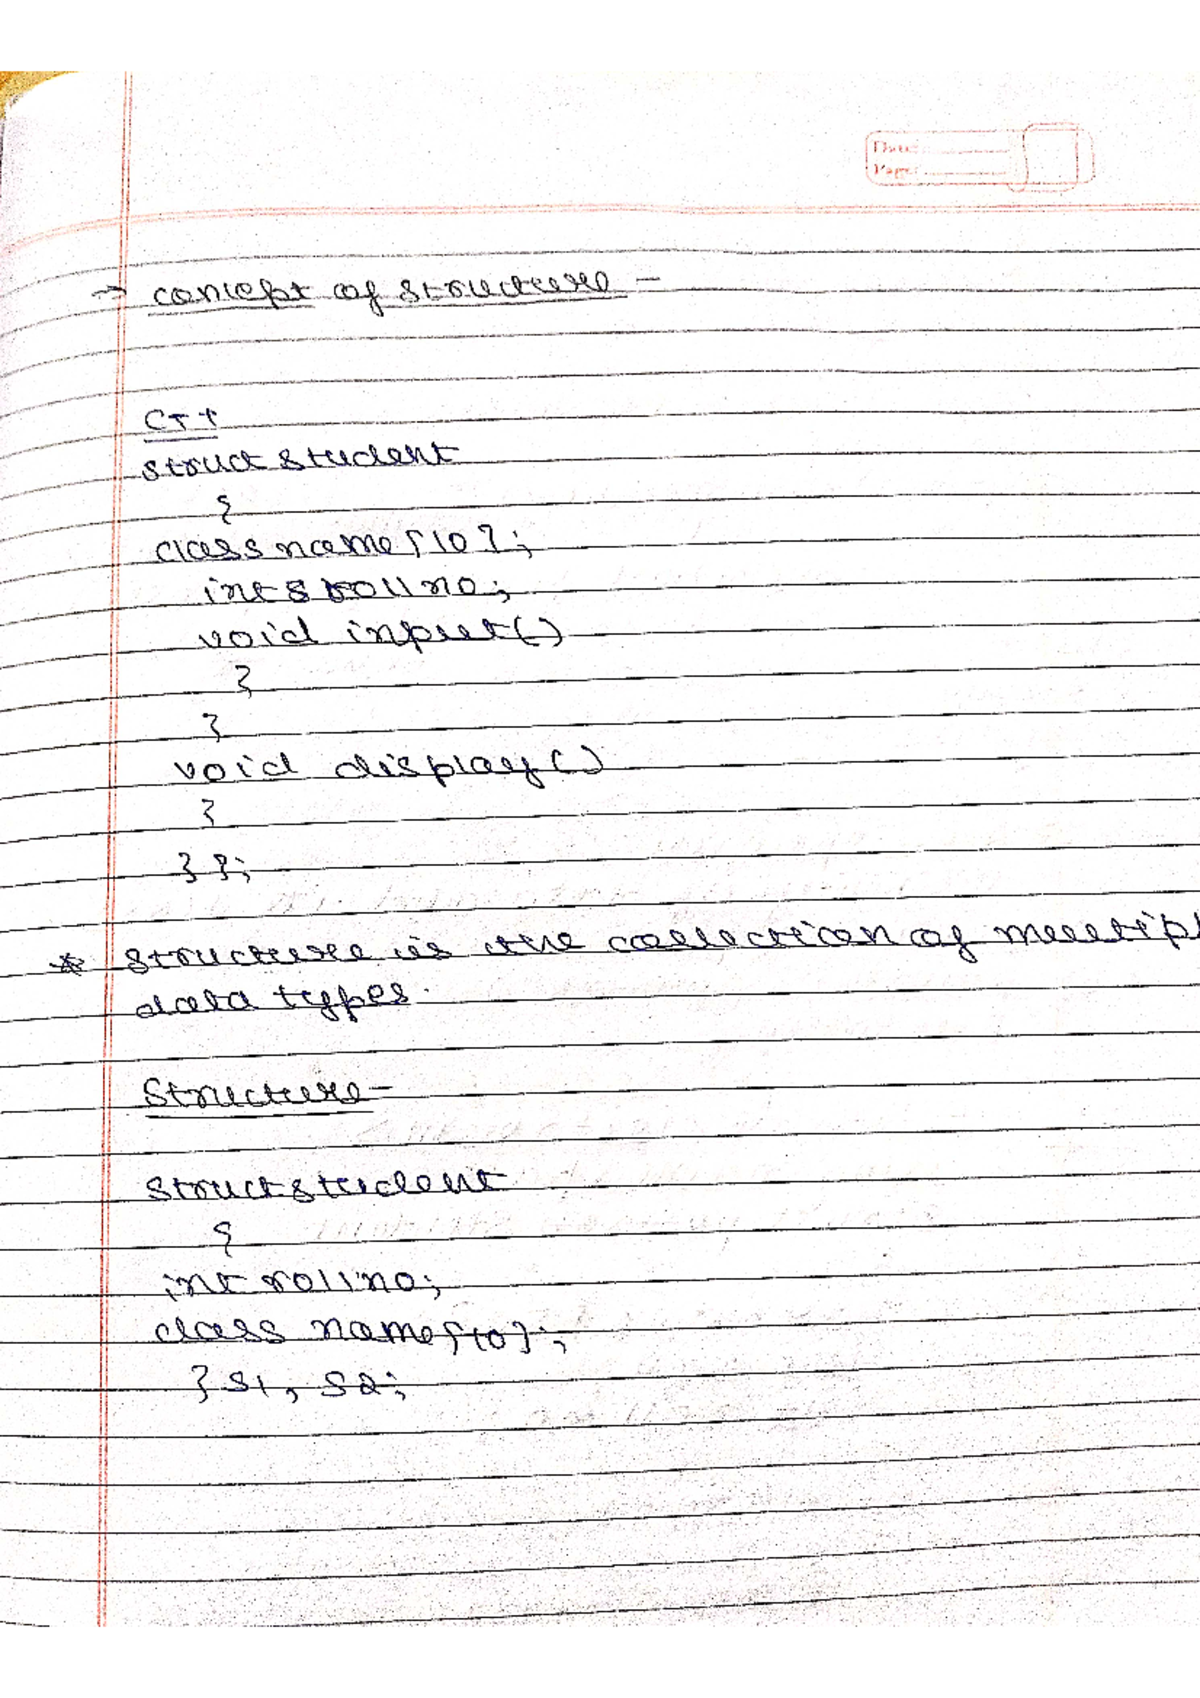 Date:
Page:
→ concept of structure -
C++
struct student
{
class name [10];
int rollno;
void input()
}
}
void display()
}
} };
* structure is the collection of multipl
data types.
Structure -
struct student
{
int rollno;
class name [10];
} s1, s2;